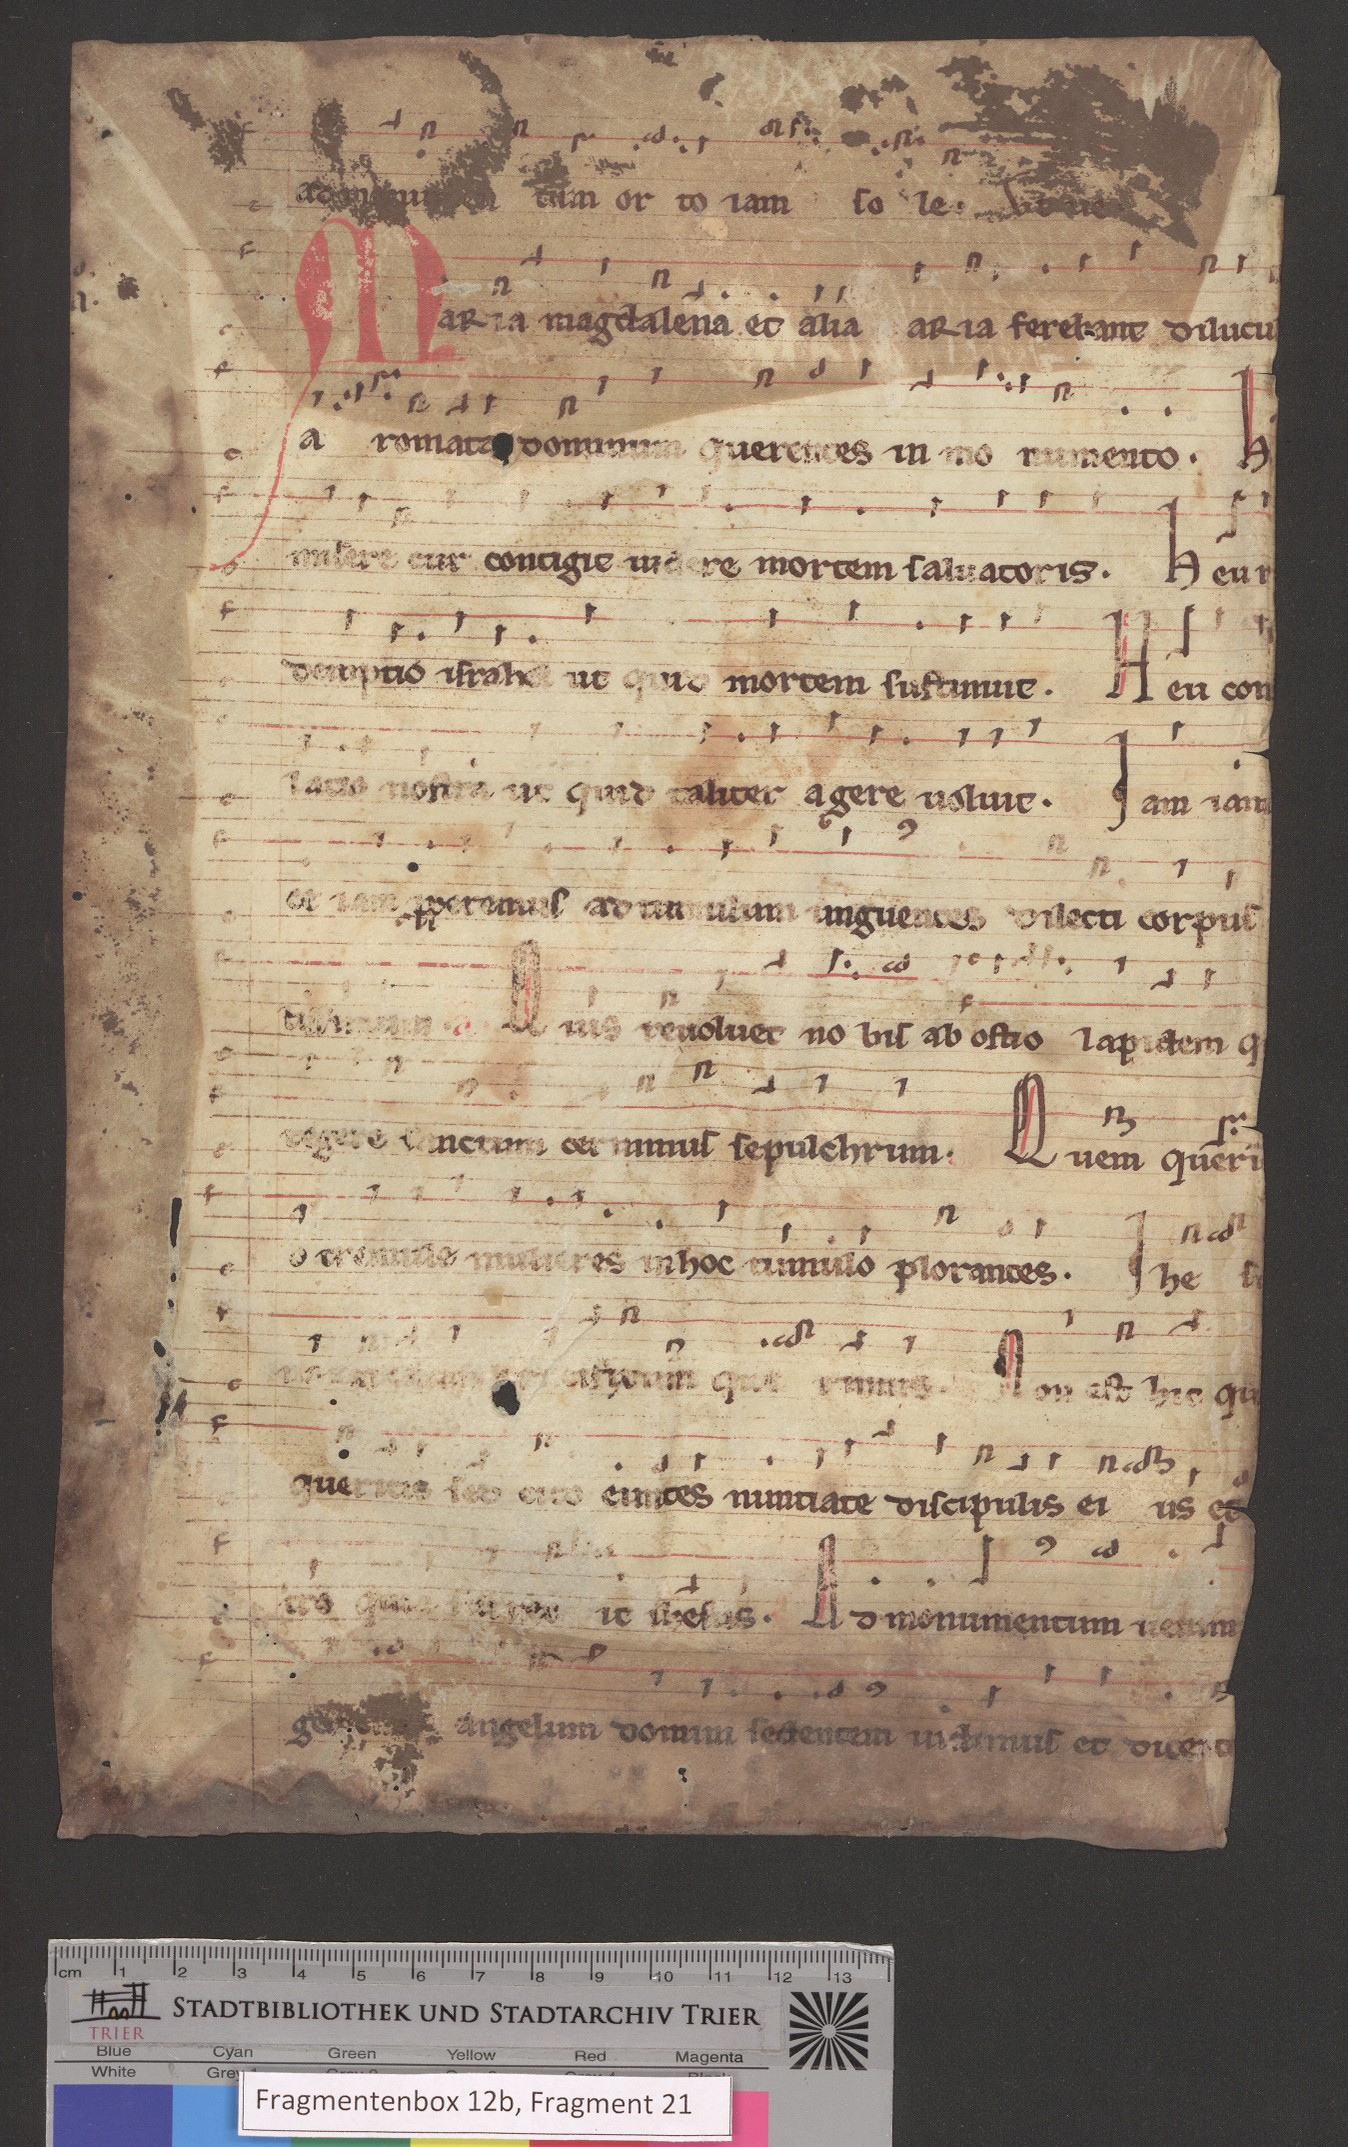 ad monumen tum or to iam so le.
Maria magdalena et alia aria ferebant dilucu
a romata dominum querentes in mo numento. H
misere cur contigit uidere mortem saluatoris. Heu r
demptio israhel ut quid mortem sustinuit. Heu con
latio nostra ut quid taliter agere uoluit. Iam iam
et iam properemus ad tumulum unguentes dilecti corpus
tissimum. Quis reuoluet no bis ab ostio lapidem q
tegere sanctum cernimus sepulchrum. Quem queri
o tremule mulieres in hoc tumulo plorantes. Ihe
crucifixum que rimus. Non est hic qu
queritis sed cito euntes nuntiate discipulis ei us et
tro quia surrex it ihesus. Ad monumentum uenim
gementes angelum domini sedentem uidimus et dicent
cm 1 2 3 4 5 6 7 8 9 10 11 12 13
TRIER
STADTBIBLIOTHEK UND STADTARCHIV TRIER
Blue Cyan Green Yellow Red Magenta
White
Fragmentenbox 12b, Fragment 21